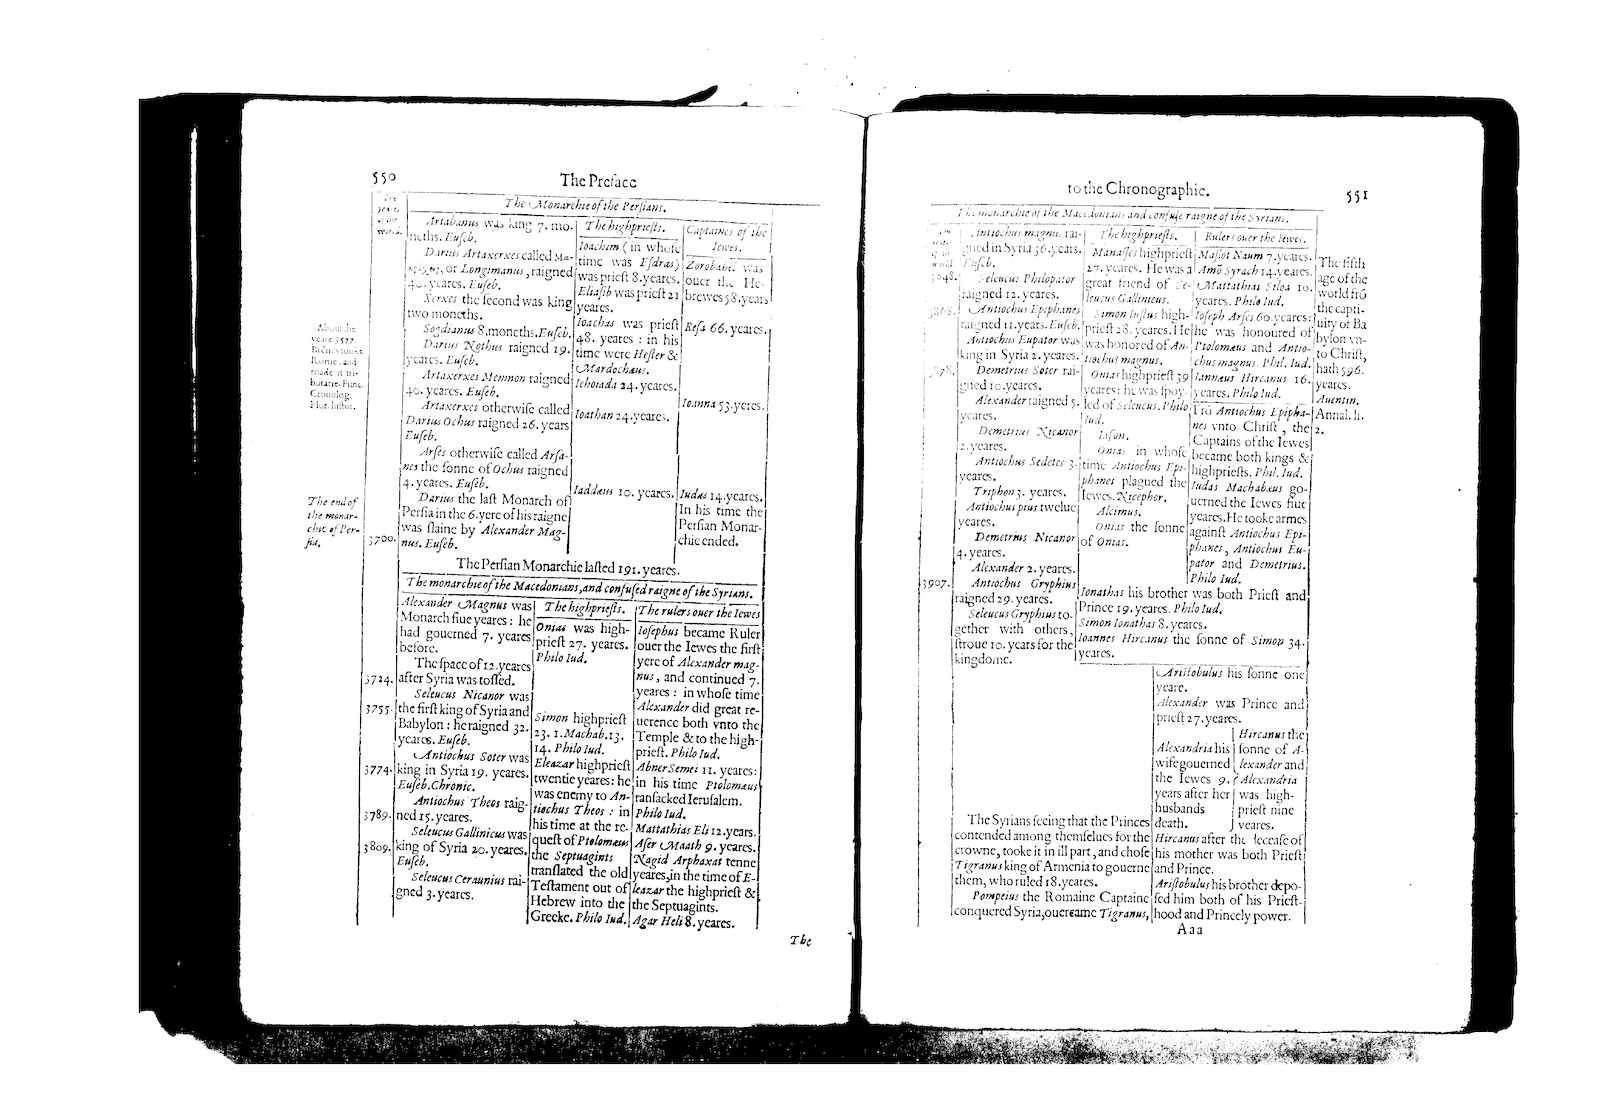 550
The Preface
The Monarchie of the Persians.
The
yeares
of the
world.
Artabanus was king 7. mo-
neths. Euseb.
Darius Artaxerxes called
or Longimanus, raigned
40. yeares. Euseb.
Xerxes the second was king
two moneths.
Sogdianus 8. moneths. Euseb.
Darius Nothus raigned 19.
yeares. Euseb.
Artaxerxes Memnon raigned
40. yeares. Euseb.
Artaxerxes otherwise called
Darius Ochus raigned 26. years
Euseb.
Arses otherwise called Arsa-
nes the sonne of Ochus raigned
4. yeares. Euseb.
Darius the last Monarch of
Persia in the 6. yere of his raigne
was slaine by Alexander Mag-
nus. Euseb.
The highpriests.
Ioachim (in whose
time was Esdras)
was priest 8. yeares.
Eliasib was priest 21
yeares.
Ioachas was priest
48. yeares : in his
time were Hester &
Mardochæus.
Iehoiada 24. yeares.
Ioathan 24. yeares.
Iaddæus 10. yeares.
Captaines of the
Iewes.
Zorobabel was
ouer the He-
brewes 58. years
Resa 66. yeares.
Ioanna 53. yeres.
Iudas 14. yeares.
In his time the
Persian Monar-
chie ended.
About the
yeare 3577.
Brennus tooke
Rome, and
made it tri-
butarie. Func.
Cronolog.
Flor. histor.
The end of
the monar-
chie of Per-
sia.
3700.
The Persian Monarchie lasted 191. yeares.
The monarchie of the Macedonians, and confused raigne of the Syrians.
Alexander Magnus was
Monarch fiue yeares : he
had gouerned 7. yeares
before.
The space of 12. yeares
3724. after Syria was tossed.
Seleucus Nicanor was
3755. the first king of Syria and
Babylon : he raigned 32.
yeares. Euseb.
Antiochus Soter was
3774. king in Syria 19. yeares.
Euseb. Chronic.
Antiochus Theos raig-
3789. ned 15. yeares.
Seleucus Gallinicus was
3809. king of Syria 20. yeares.
Euseb.
Seleucus Ceraunius rai-
gned 3. yeares.
The highpriests.
Onias was high-
priest 27. yeares.
Philo Iud.
Simon highpriest
23. 1. Machab. 13.
14. Philo Iud.
Eleazar highpriest
twentie yeares: he
was enemy to An-
tiochus Theos : in
his time at the re-
quest of Ptolomæus
the Septuagints
translated the old
Testament out of
Hebrew into the
Greeke. Philo Iud.
The rulers ouer the Iewes
Iosephus became Ruler
ouer the Iewes the first
yere of Alexander mag-
nus, and continued 7.
yeares : in whose time
Alexander did great re-
uerence both vnto the
Temple & to the high-
priest. Philo Iud.
Abner Semei 11. yeares:
in his time Ptolomæus
ransacked Ierusalem.
Philo Iud.
Mattathias Eli 12. yeares.
Aser Maath 9. yeares.
Nagid Arphaxat tenne
yeares, in the time of E-
leazar the highpriest &
the Septuagints.
Agar Heli 8. yeares.
The
to the Chronographie.
551
The monarchie of the Macedonians and confuse raigne of the Syrians.
Antiochus magnus rai-
gned in Syria 36. years.
Euseb.
3848. Seleucus Philopator
raigned 12. yeares.
Antiochus Epiphanes
raigned 11. years. Euseb.
Antiochus Eupator was
king in Syria 2. yeares.
Demetrius Soter rai-
gned 10. yeares.
Alexander raigned 5.
yeares.
Demetrius Nicanor
2. yeares.
Antiochus Sedetes 3.
yeares.
Triphon 3. yeares.
Antiochus pius twelue
yeares.
Demetrius Nicanor
4. yeares.
Alexander 2. yeares.
3907. Antiochus Gryphius
raigned 29. yeares.
Seleucus Gryphius to-
gether with others,
stroue 10. years for the
kingdome.
The highpriests.
Manasses highpriest
27. yeares. He was a
great friend of Se-
leucus Gallinicus.
Simon Iustus high-
priest 28. yeares. He
was honored of An-
tiochus magnus.
Onias highpriest 39
yeares: he was spoy-
led of Seleucus. Philo
Iud.
Iason.
Onias in whose
time Antiochus Epi-
phanes plagued the
Iewes. Nicephor.
Alcimus.
Onias the sonne
of Onias.
Rulers ouer the Iewes.
Maslot Naum 7. yeares.
Amō Syrach 14. yeares.
Mattathias Siloa 10.
yeares. Philo Iud.
Ioseph Arses 60. yeares:
he was honoured of
Ptolomæus and Antio-
chus magnus. Phil. Iud.
Iannæus Hircanus 16.
yeares. Philo Iud.
Frō Antiochus Epipha-
nes vnto Christ, the
Captains of the Iewes
became both kings &
highpriests. Phil. Iud.
Iudas Machabæus go-
uerned the Iewes fiue
yeares. He tooke armes
against Antiochus Epi-
phanes, Antiochus Eu-
pator and Demetrius.
Philo Iud.
The fifth
age of the
world frō
the capti-
uity of Ba
bylon vn-
to Christ,
hath 596.
yeares.
Auentin.
Annal. li.
2.
Ionathas his brother was both Priest and
Prince 19. yeares. Philo Iud.
Simon Ionathas 8. yeares.
Ioannes Hircanus the sonne of Simon 34.
yeares.
Aristobulus his sonne one
yeare.
Alexander was Prince and
priest 27. yeares.
Alexandria his
wife gouerned
the Iewes 9.
years after her
husbands
death.
Hircanus the
sonne of A-
lexander and
Alexandria
was high-
priest nine
yeares.
The Syrians seeing that the Princes
contended among themselues for the
crowne, tooke it in ill part, and chose
Tigranus king of Armenia to gouerne
them, who ruled 18. yeares.
Pompeius the Romaine Captaine
conquered Syria, ouercame Tigranus,
Hircanus after the decease of
his mother was both Priest
and Prince.
Aristobulus his brother depo-
sed him both of his Priest-
hood and Princely power.
Aaa